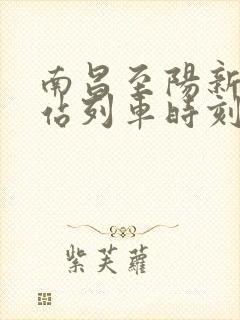 南昌至陽新
佔列車時刻
紫芙蘿